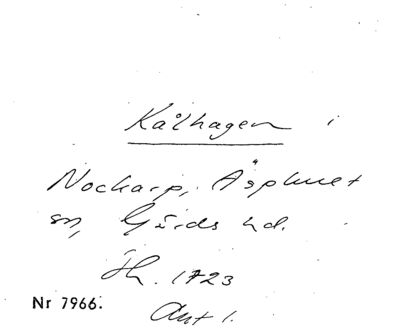 Kålhagen i
Nockarp, Äsphult
sn, Gärds hd.
Jh. 1723
Akt 1.
Nr 7966.